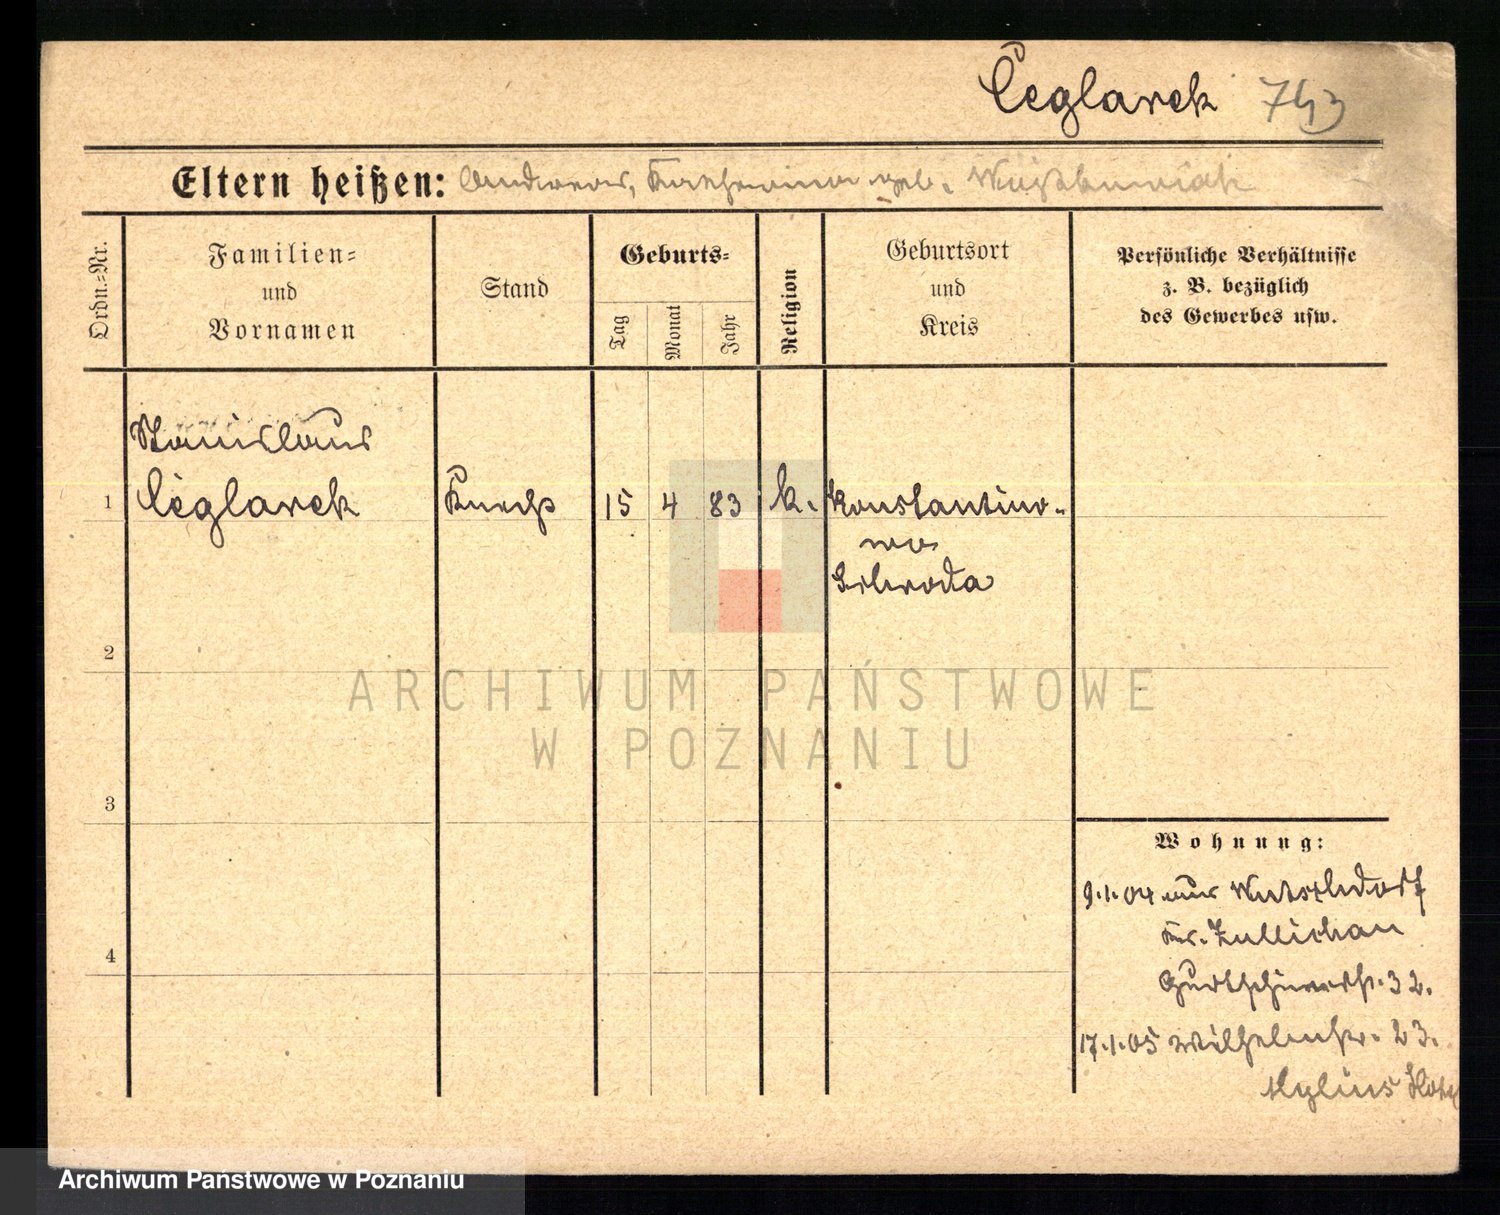 Ceglarek 743
Eltern heißen: Andreas, Katharina geb.
Ordn.=Nr.
Familien=
und
Vornamen
Stand
Geburts=
Tag
Monat
Jahr
Religion
Geburtsort
und
Kreis
Persönliche Verhältnisse
z. B. bezüglich
des Gewerbes usw.
Stanislaus
1 Ceglarek Knecht 15 4 83 k. Konstantino-
wo
Schroda
2
ARCHIWUM PAŃSTWOWE
W POZNANIU
3
Wohnung:
9.1.04 aus
Kr. Züllichau
Gurtschinerstr. 32.
4
17.1.05 Wilhelmstr. 23.
Mylius Hotel
Archiwum Państwowe w Poznaniu